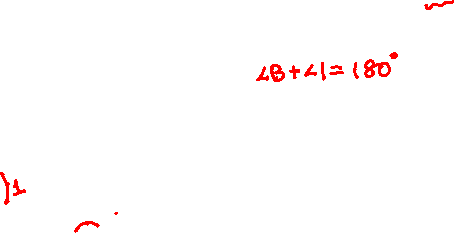 ∠B+∠1=180°
1